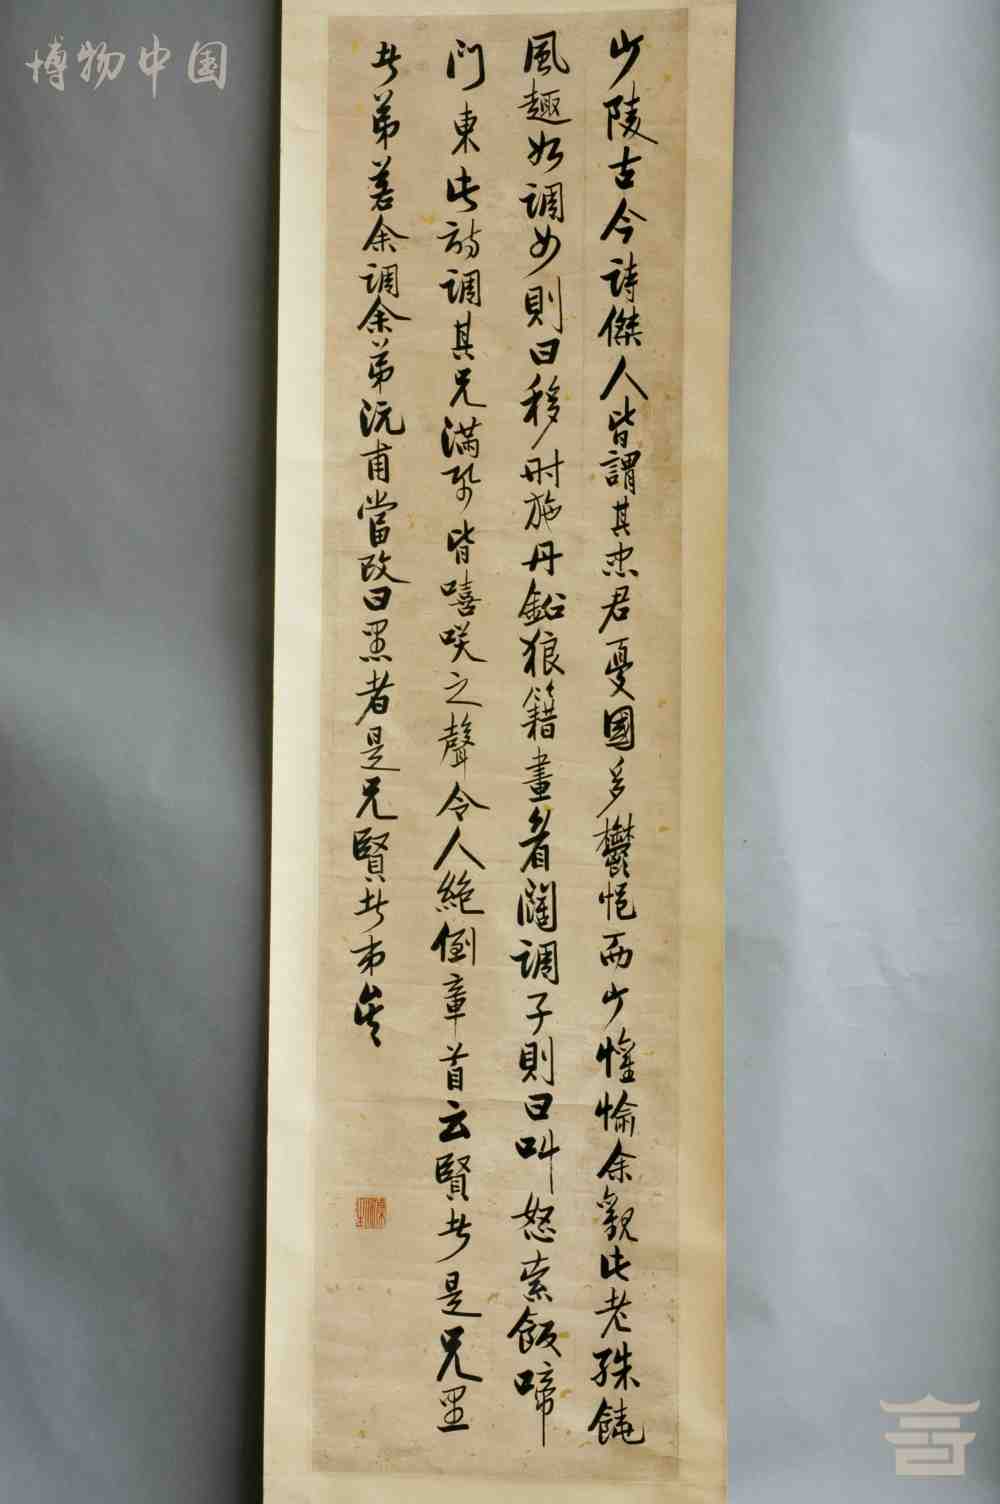 博物中国
少陵古今詩傑人皆謂其忠君憂國多鬱悒而少懽愉余觀此老殊饒
風趣如調女則曰移时施丹鉛狼籍畫眉闊調子則曰叫怒索飯啼
门東此詩調其兄滿紙皆嘻咲之聲令人絶倒章首云賢者是兄愚
者弟若余調余弟沅甫當改曰愚者是兄賢者弟